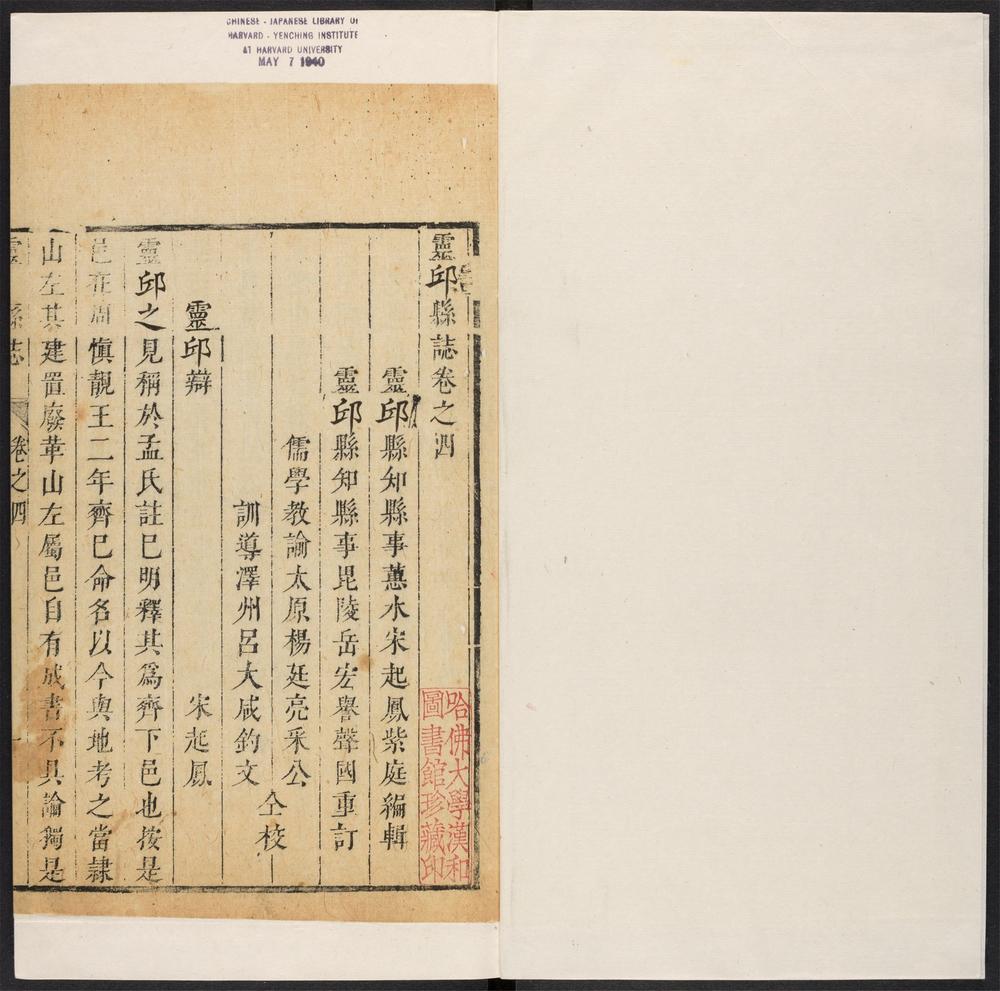 CHINESE - JAPANESE LIBRARY OF
HARVARD - YENCHING INSTITUTE
AT HARVARD UNIVERSITY
MAY 7 1940
靈邱縣誌卷之四
靈邱縣知縣事蕙水宋起鳳紫庭編輯
靈邱縣知縣事毘陵岳宏譽聲國重訂
儒學教諭太原楊廷亮采公
訓導澤州呂大咸鈞文
仝校
靈邱辯
宋起鳳
靈邱之見稱於孟氏註巳明釋其爲齊下邑也按是
邑在周慎靚王二年齊巳命名以今輿地考之當隷
山左其建置廢革山左屬邑自有成書不具論獨是
靈 縣誌 卷之四 一
哈佛大學漢和
圖書館珍藏印